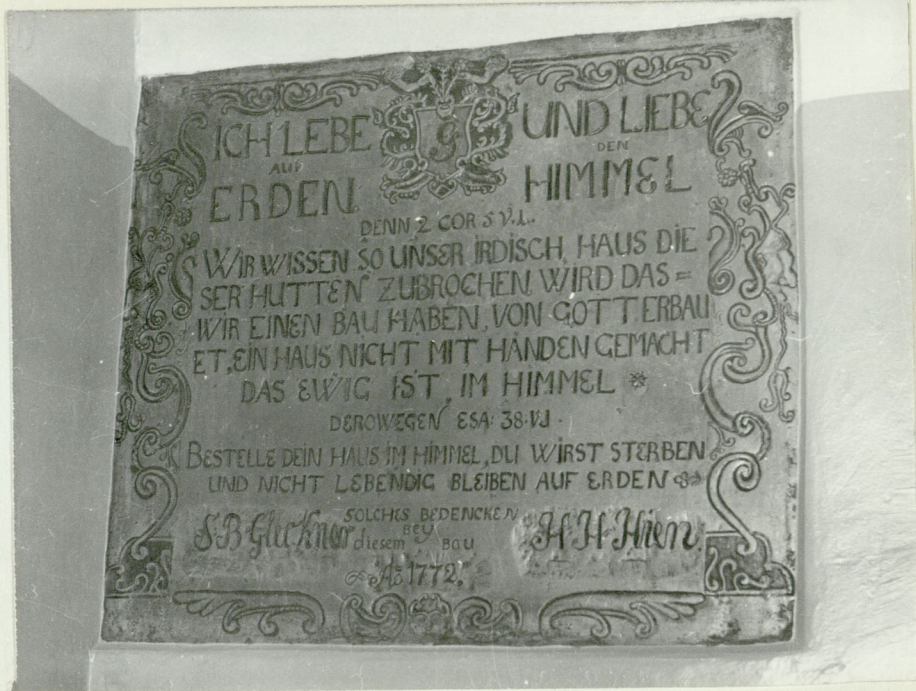 ICH LEBE G UND LIEBE
AUF DEN
ERDEN HIMMEL
DENN 2 COR 5 V.1.
WIR WISSEN SO UNSER IRDISCH, HAUS DIE
SER HUTTEN ZUBROCHEN WIRD DAS =
WIR EINEN BAU HABEN, VON GOTT ERBAU
ET, EIN HAUS NICHT MIT HÄNDEN GEMACHT
DAS EWIG IST, IM HIMMEL
DEROWEGEN ESA: 38. V.1.
BESTELLE DEIN HAUS IM HIMMEL, DU WIRST STERBEN
UND NICHT LEBENDIG BLEIBEN AUF ERDEN
SOLCHES BEDENCKEN
S B Glückner BEY H H Hien.
diesem Bau
Aō 1772.